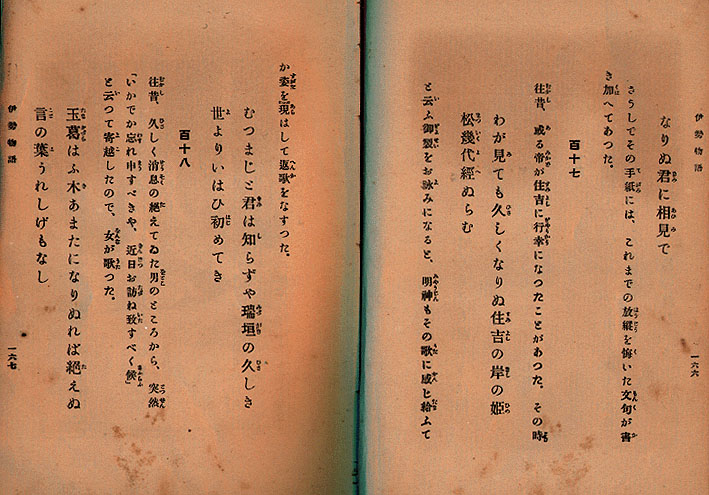 伊勢物語
一六六
なりぬ君に相見で
さうしてその手紙には、これまでの放縦を悔いた文句が書
き加へてあつた。
百十七
往昔、或る帝が住吉に行幸になつたことがあつた。その時
わが見ても久しくなりぬ住吉の岸の姫
松幾代經ぬらむ
と云ふ御製をお詠みになると、明神もその歌に感じ給ふて
か姿を現はして返歌をなすつた。
むつまじと君は知らずや瑞垣の久しき
世よりいはひ初めてき
百十八
往昔、久しく消息の絶えてゐた男のところから、突然
「いかでか忘れ申すべきや、近日お訪ね致すべく候」
と云つて寄越したので、女が歌つた。
玉葛はふ木あまたになりぬれば絶えぬ
言の葉うれしげもなし
伊勢物語
一六七